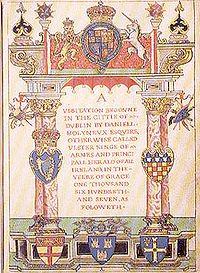 A
VISITACION BEGONNE
IN THE CITTIE OF
DUBLIN BY DANIELL
MOLYNEUX ESQUIRE,
OTHERWISE CALLED
ULSTER KINGE OF
ARMES AND PRINCI
PALL HERALD OF ALL
IRELAND IN THE
YEERE OF GRACE
ONE THOWSAND
SIX HUNDRETH
AND SEVEN, AS
FOLOWETH.